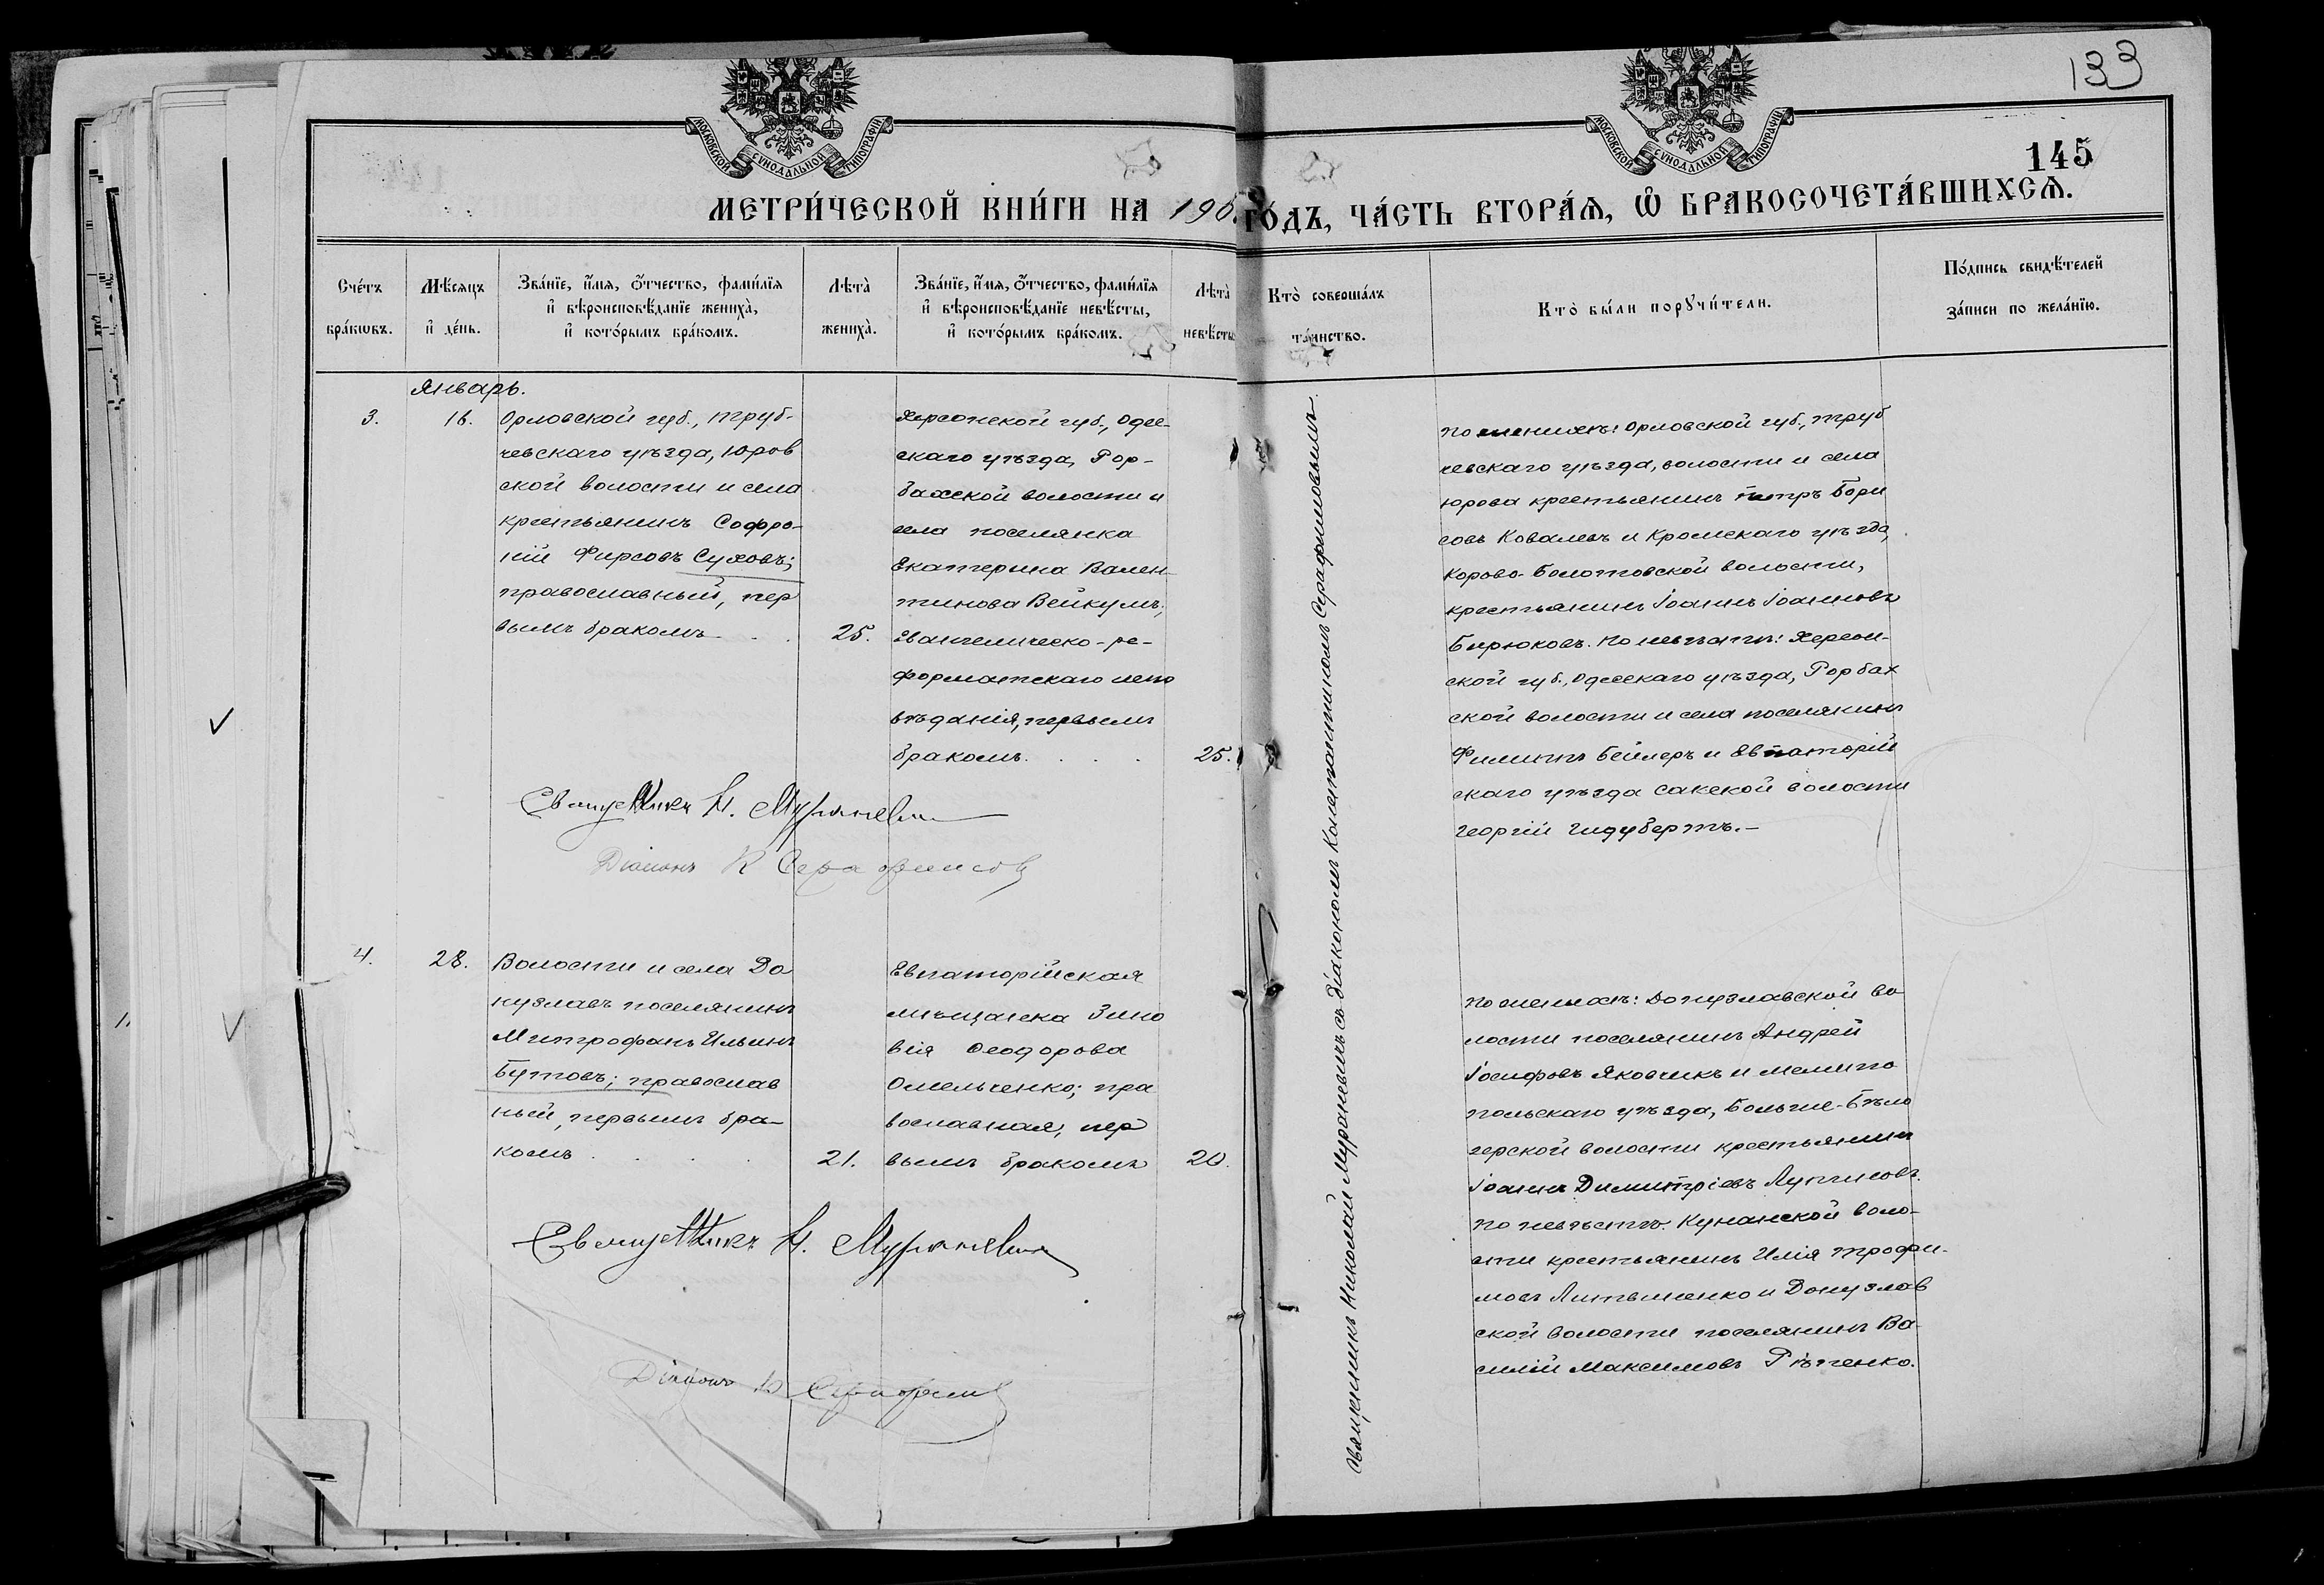 133
145
МОСКОВСКОЙ СѴНОДАЛЬНОЙ ТИПОГРАФІИ
МОСКОВСКОЙ СѴНОДАЛЬНОЙ ТИПОГРАФІИ
МЕТРИ́ЧЕСКОЙ КНИ́ГИ НА 190 ГО́ДЪ, ЧА́СТЬ ВТОРА́Я, Ѽ БРАКОСОЧЕТА́ВШИХСЯ.
Сче́тъ бра́кѡвъ.
Мѣ́сяцъ и҆ де́нь.
Зва́нїе, и҆́мя, ѻ҆́тчество, фами́лїя и҆ вѣроисповѣ́данїе жениха̀, и҆ кото́рымъ бра́комъ.
Лѣта̀ жениха̀.
Зва́нїе, и҆́мя, ѻ҆́тчество, фами́лїя и҆ вѣроисповѣ́данїе невѣ́сты, и҆ кото́рымъ бра́комъ.
Лѣта̀ невѣ́сты
Кто̀ соверша́лъ та́инство.
Кто̀ бы́ли порꙋчи́тели.
По́дпись свидѣ́телей за́писи по жела́нїю.
Январь.
3.
16.
Орловской губ., Труб-
чевскаго уѣзда, Юров
ской волости и села
крестьянинъ Софро-
ній Фирсовъ Суховъ;
православный, пер
вымъ бракомъ. . .
25.
Херсонской губ., Одес-
скаго уѣзда, Рор-
бахской волости и
села поселянка
Екатерина Вален-
тинова Вейкумъ;
Евангелическо-ре-
форматскаго испо
вѣданія, первымъ
бракомъ. . . .
25.
Священникъ Николай Мураневичъ съ діакономъ Колистратомъ Серафимовымъ.
По женихѣ: Орловской губ., Труб
чевскаго уѣзда, волости и села
Юрова крестьянинъ Петръ Бори
совъ Ковалевъ и Кромскаго уѣзда,
Корово-Болотовской волости,
крестьянинъ Іоаннъ Іоанновъ
Бирюковъ. По невѣстѣ: Херсон-
ской губ., Одесскаго уѣзда, Рорбах
ской волости и села поселянинъ
Филиппъ Бейлеръ и Евпаторій
скаго уѣзда Сакской волости
Георгій Гидубертъ.-
Н. Мураневич
Діаконъ К Серафимовъ
4.
28.
Волости и села До
нузлавъ поселянинъ
Митрофанъ Ильинъ
Бутовъ; православ
ный, первымъ бра-
комъ . . . .
21.
Евпаторійская
мѣщанка Зино
вія Ѳеодорова
Омельченко; пра
вославная, пер
вымъ бракомъ
20.
По женихѣ: Донузлавской во
лости поселянинъ Андрей
Іосифовъ Яковчикъ и Мелито
польскаго уѣзда, Больше-Бѣло
зерской волости крестьянинъ
Іоаннъ Димитріевъ Лупиновъ.
По невѣстѣ: Кунанской воло-
сти крестьянинъ Илія Трофи-
мовъ Литвиненко и Донузлав
ской волости поселянинъ Ва
силій Максимовъ Рѣпенко.
Н. Мураневич
Діаконъ К Серафимовъ